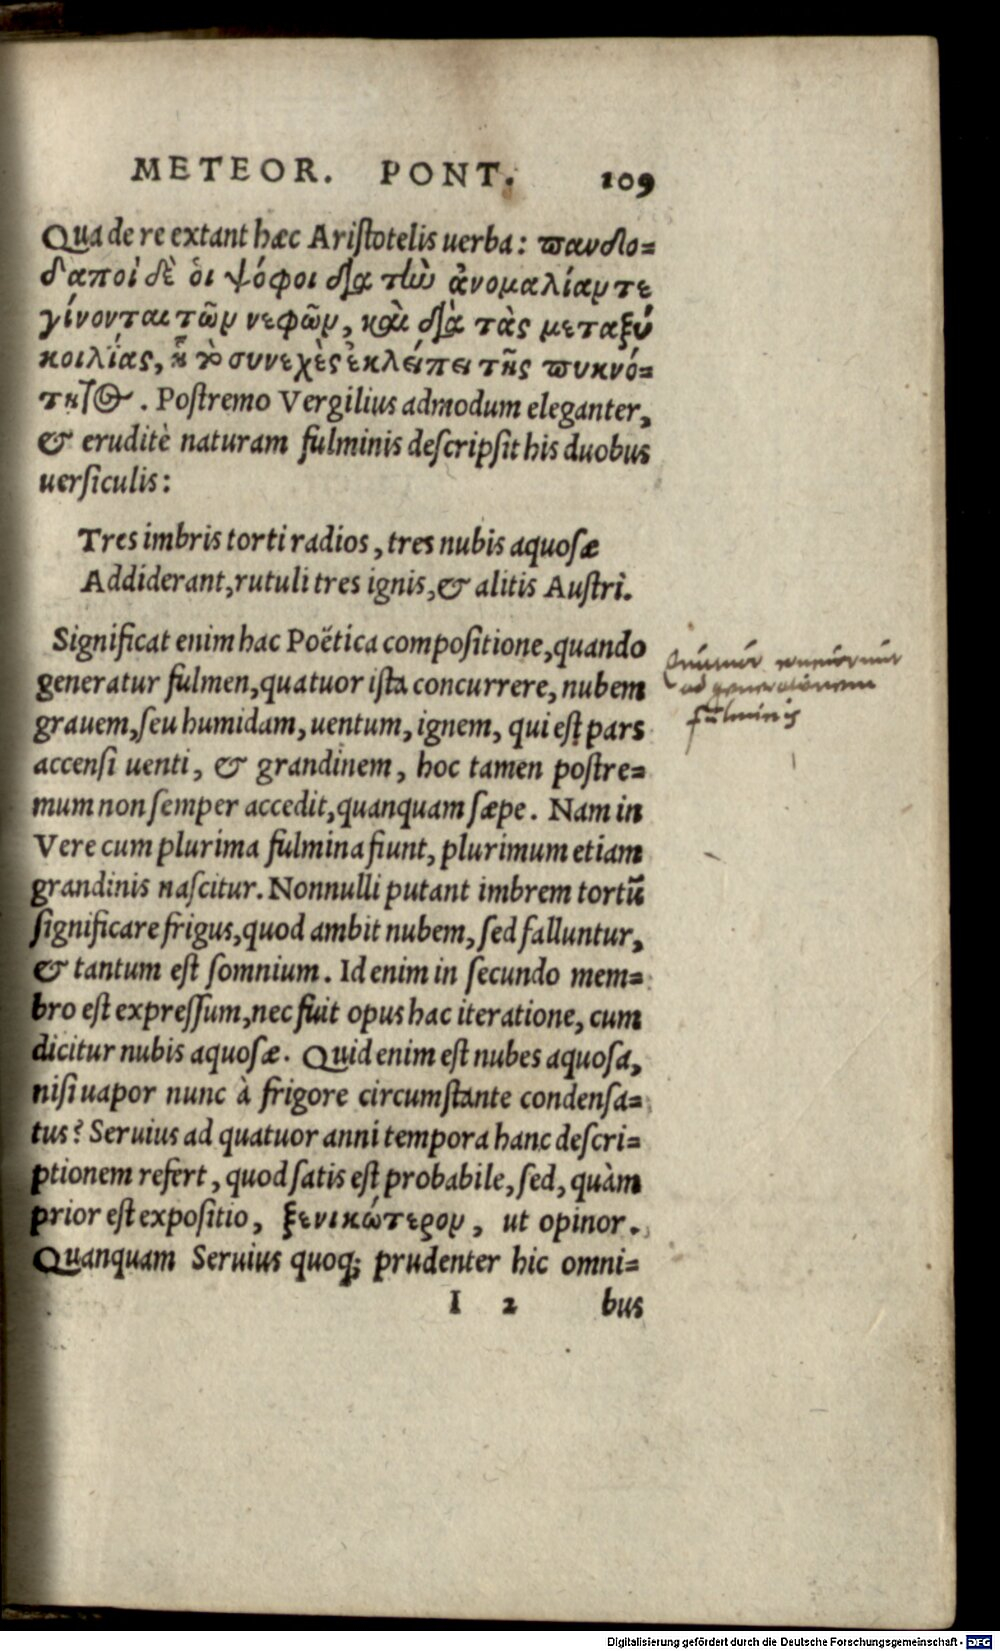 METEOR. PONT. 109
Qua de re extant hæc Aristotelis uerba: παντο=
δαποὶ δὲ ὁι ψόφοι διὰ τὴν ἀνομαλίαν τε
γίνονται τῶν νεφῶν, καὶ διὰ τὰς μεταξύ
κοιλίας, ᾗ τὸ συνεχὲς ἐκλείπει τῆς πυκνό=
τητος. Postremo Vergilius admodum eleganter,
& eruditè naturam fulminis descripsit his duobus
uersiculis:
Tres imbris torti radios, tres nubis aquosæ
Addiderant, rutuli tres ignis, & alitis Austri.
Significat enim hac Poëtica compositione, quando
generatur fulmen, quatuor ista concurrere, nubem
grauem, seu humidam, uentum, ignem, qui est pars
accensi uenti, & grandinem, hoc tamen postre=
mum non semper accedit, quanquam sæpe. Nam in
Vere cum plurima fulmina fiunt, plurimum etiam
grandinis nascitur. Nonnulli putant imbrem tortū
significare frigus, quod ambit nubem, sed falluntur,
& tantum est somnium. Id enim in secundo mem=
bro est expressum, nec fuit opus hac iteratione, cum
dicitur nubis aquosæ. Quid enim est nubes aquosa,
nisi uapor nunc à frigore circumstante condensa=
tus? Seruius ad quatuor anni tempora hanc descri=
ptionem refert, quod satis est probabile, sed, quàm
prior est expositio, ξενικώτερον, ut opinor.
Quanquam Seruius quoq; prudenter hic omni=
I 2 bus
ad generationem
fulminis
Digitalisierung gefördert durch die Deutsche Forschungsgemeinschaft - DFG